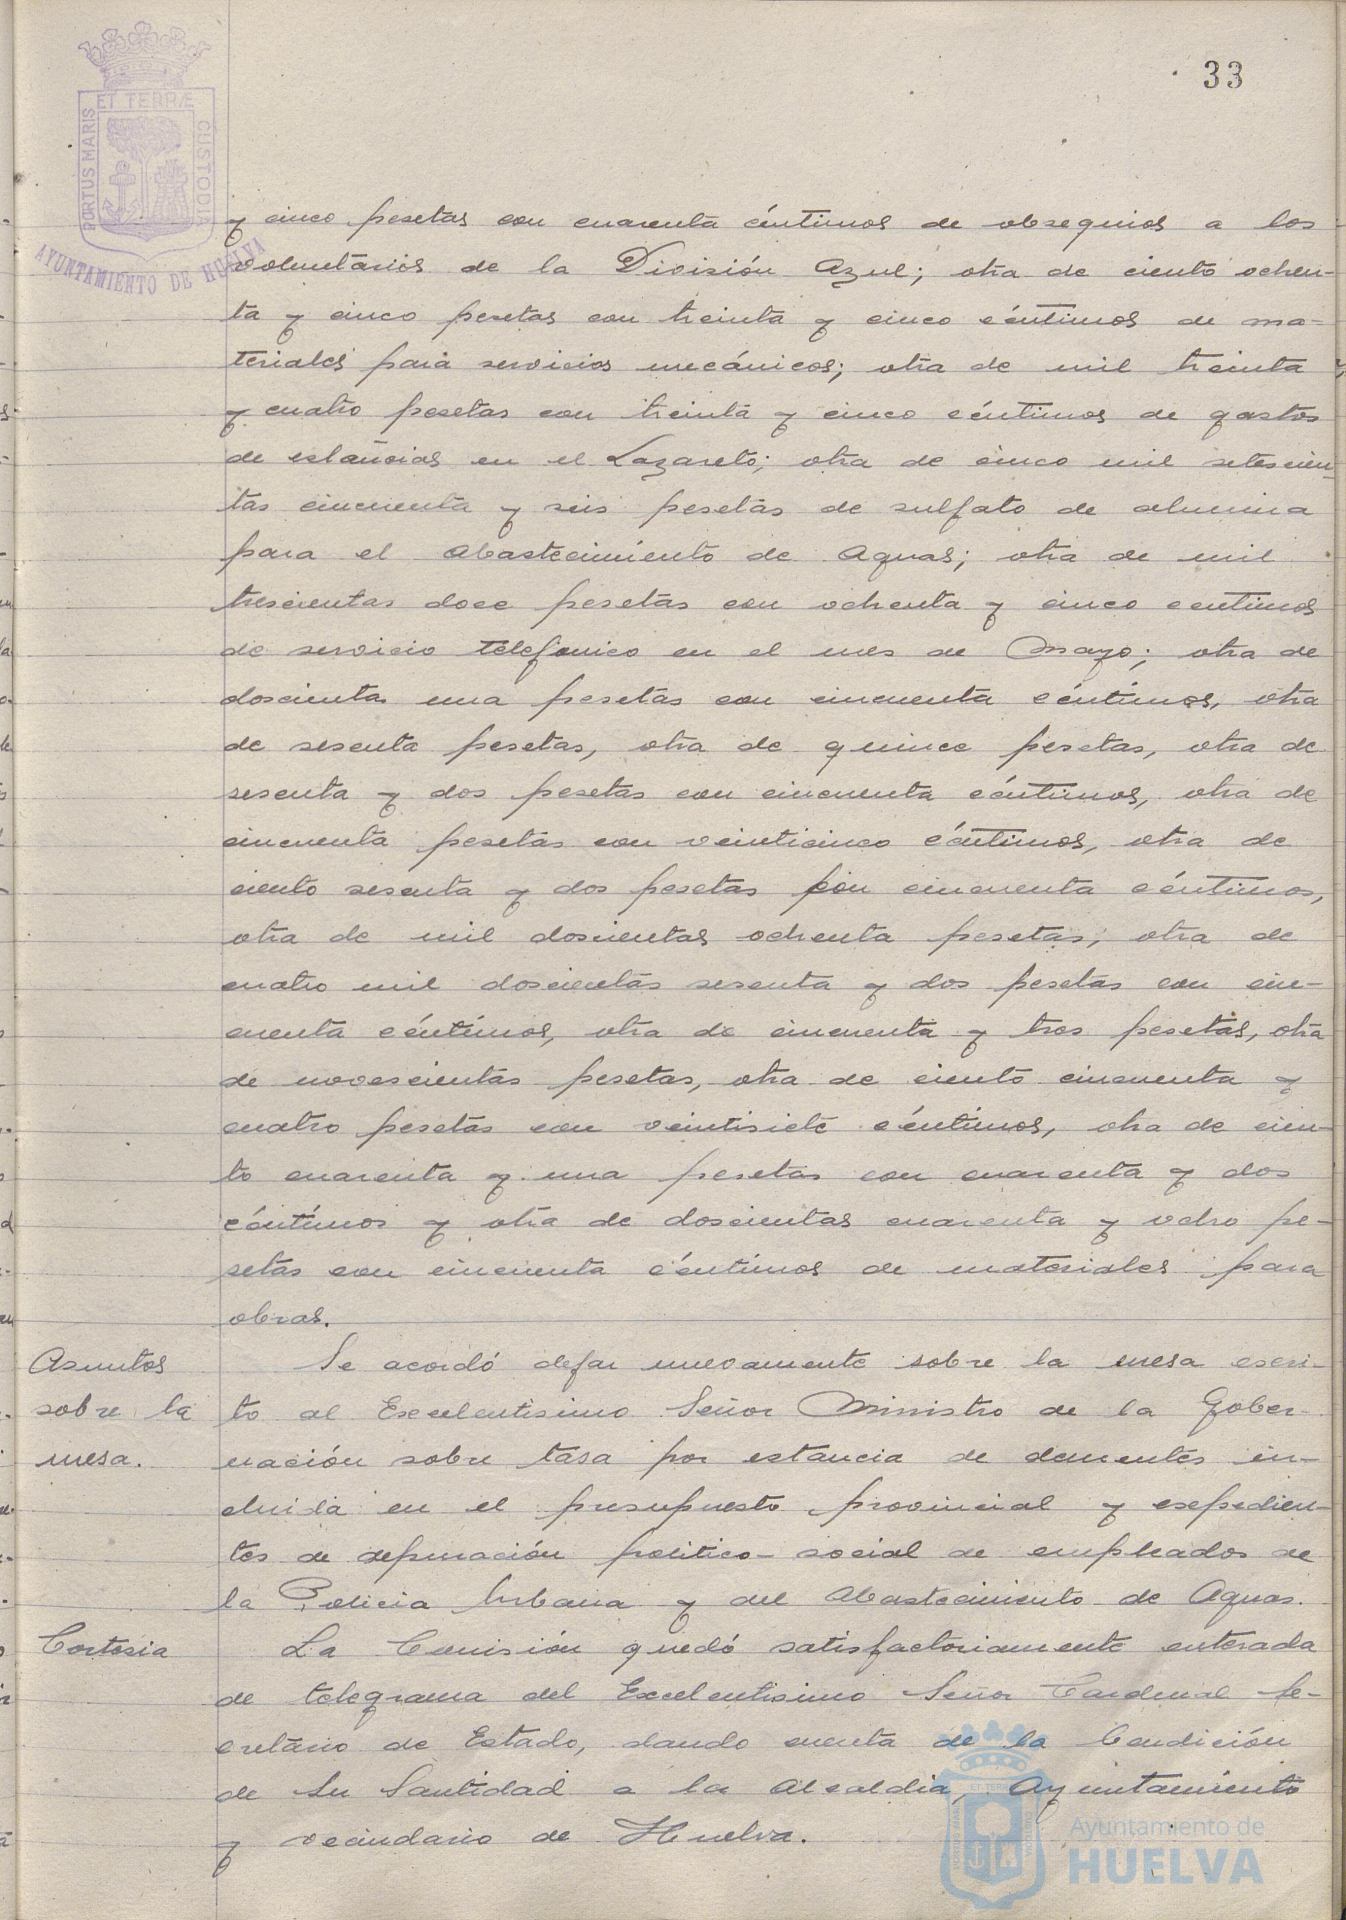 33
PORTUS MARIS ET TERRÆ CUSTODIA
AYUNTAMIENTO DE HUELVA
y cinco pesetas con cuarenta céntimos de obsequios a los
voluntarios de la División Azul; otra de ciento ochen-
ta y cinco pesetas con treinta y cinco céntimos de ma-
teriales para servicios mecánicos; otra de mil treinta
y cuatro pesetas con treinta y cinco céntimos de gastos
de estancias en el Lazareto; otra de cinco mil setescien-
tas cincuenta y seis pesetas de sulfato de alumina
para el Abastecimiento de Aguas; otra de mil
trescientas doce pesetas con ochenta y cinco centimos
de servicio telefonico en el mes de Mayo; otra de
doscientas una pesetas con cincuenta céntimos, otra
de sesenta pesetas, otra de quince pesetas, otra de
sesenta y dos pesetas con cincuenta céntimos, otra de
cincuenta pesetas con veinticinco céntimos, otra de
ciento sesenta y dos pesetas con cincuenta céntimos,
otra de mil doscientas ochenta pesetas, otra de
cuatro mil doscientas sesenta y dos pesetas con cin-
cuenta céntimos, otra de cincuenta y tres pesetas, otra
de novescientas pesetas, otra de ciento cincuenta y
cuatro pesetas con veintisiete céntimos, otra de cien-
to cuarenta y una pesetas con cuarenta y dos
céntimos y otra de doscientas cuarenta y ocho pe-
setas con cincuenta céntimos de materiales para
obras.
Asuntos sobre la mesa.
Se acordó dejar nuevamente sobre la mesa escri-
to al Excelentisimo Señor Ministro de la Gober-
nación sobre tasa por estancia de dementes in-
cluida en el presupuesto provincial y expedien-
tes de depuración politico-social de empleados de
la Policia Urbana y del Abastecimiento de Aguas.
Cortesia
La Comisión quedó satisfactoriamente enterada
de telegrama del Excelentisimo Señor Cardenal Se-
cretario de Estado, dando cuenta de la bendición
de Su Santidad a la Alcaldia, Ayuntamiento
y vecindario de Huelva.
Ayuntamiento de
HUELVA